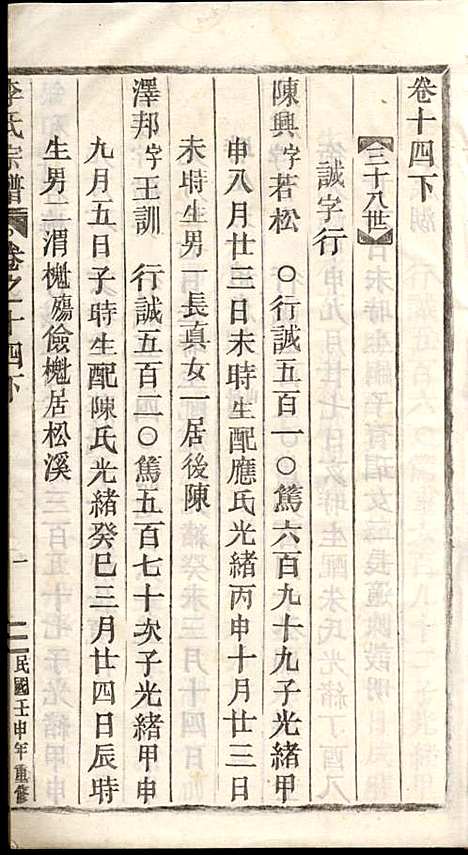 卷十四下
三十八世
誠字行
陳興字若松　○行誠五百一○篤六百九十九子光緒甲
申八月廿三日未時生配應氏光緒丙申十月廿三日
未時生男一長真女一居後陳
澤邦字王訓　行誠五百二○篤五百七十次子光緒甲申
九月五日子時生配陳氏光緒癸巳三月廿四日辰時
生男二渭槐殤儉槐居松溪
李氏宗譜　卷之十四下　一　民國壬申年重修